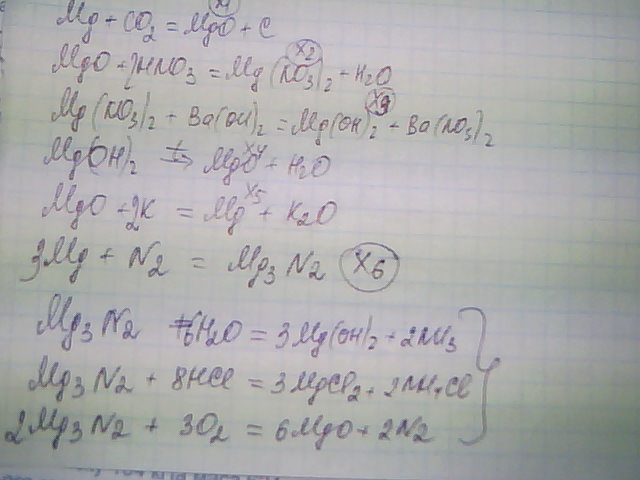 X1
Mg + CO2 = MgO + C
X2
MgO + 2HNO3 = Mg(NO3)2 + H2O
X3
Mg(NO3)2 + Ba(OH)2 = Mg(OH)2 + Ba(NO3)2
X4
Mg(OH)2 t→ MgO + H2O
X5
MgO + 2K = Mg + K2O
3Mg + N2 = Mg3N2 X6
Mg3N2 + 6H2O = 3Mg(OH)2 + 2NH3
Mg3N2 + 8HCl = 3MgCl2 + 2NH4Cl
2Mg3N2 + 3O2 = 6MgO + 2N2